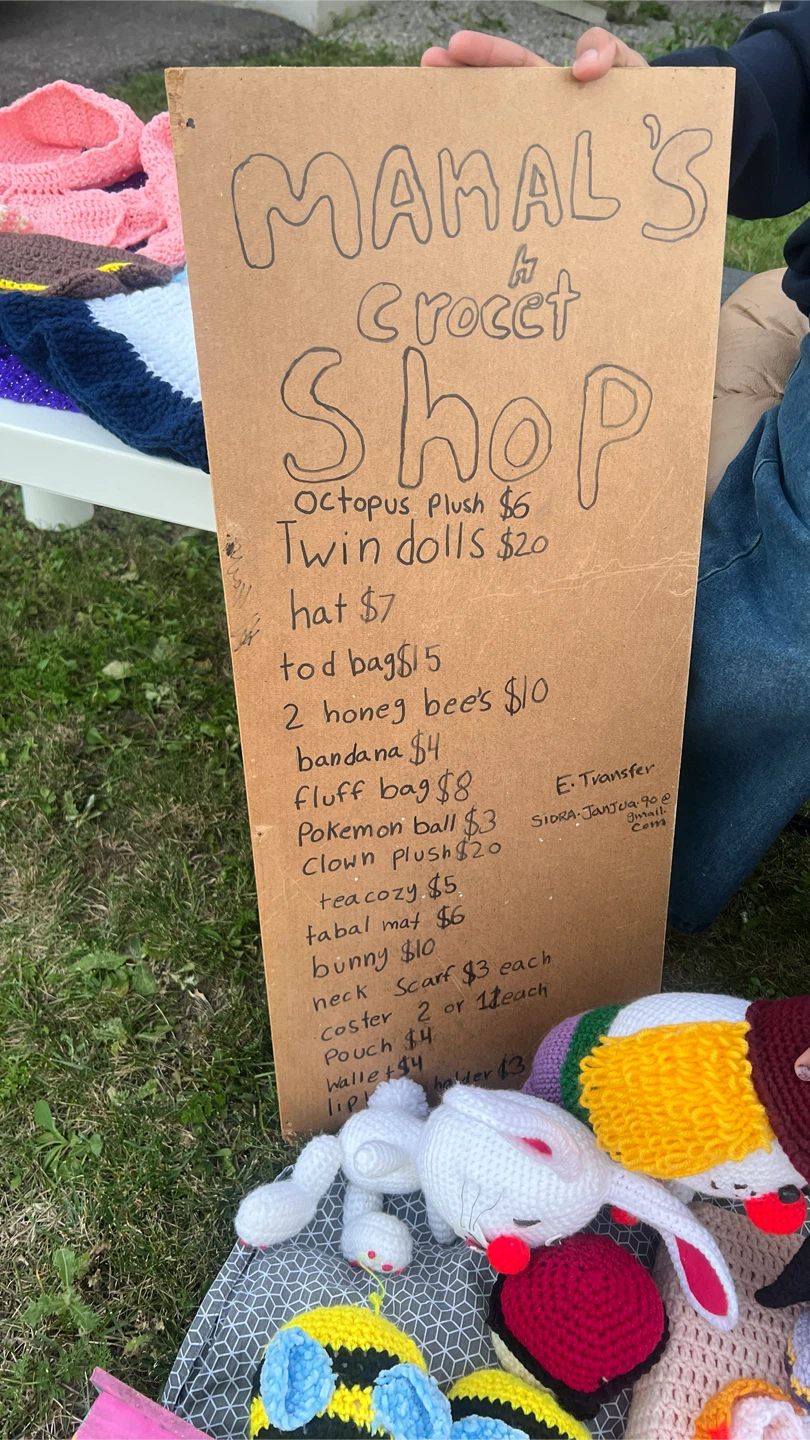 MANAL'S
Crochet
Shop
Octopus plush $6
Twin dolls $20
hat $7
tod bag $15
2 honeg bee's $10
bandana $4
fluff bag $8
Pokemon ball $3
Clown plush $20
teacozy $5
tabal mat $6
bunny $10
neck scarf $3 each
coster 2 or 1 each
Pouch $4
wallet $4
lip holder $3
E-Transfer
SIDRA.Janjua.90@
gmail.
com